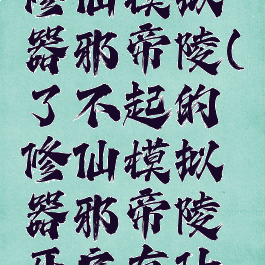 修仙模拟
器邪帝陵(
了不起的
修仙模拟
器邪帝陵